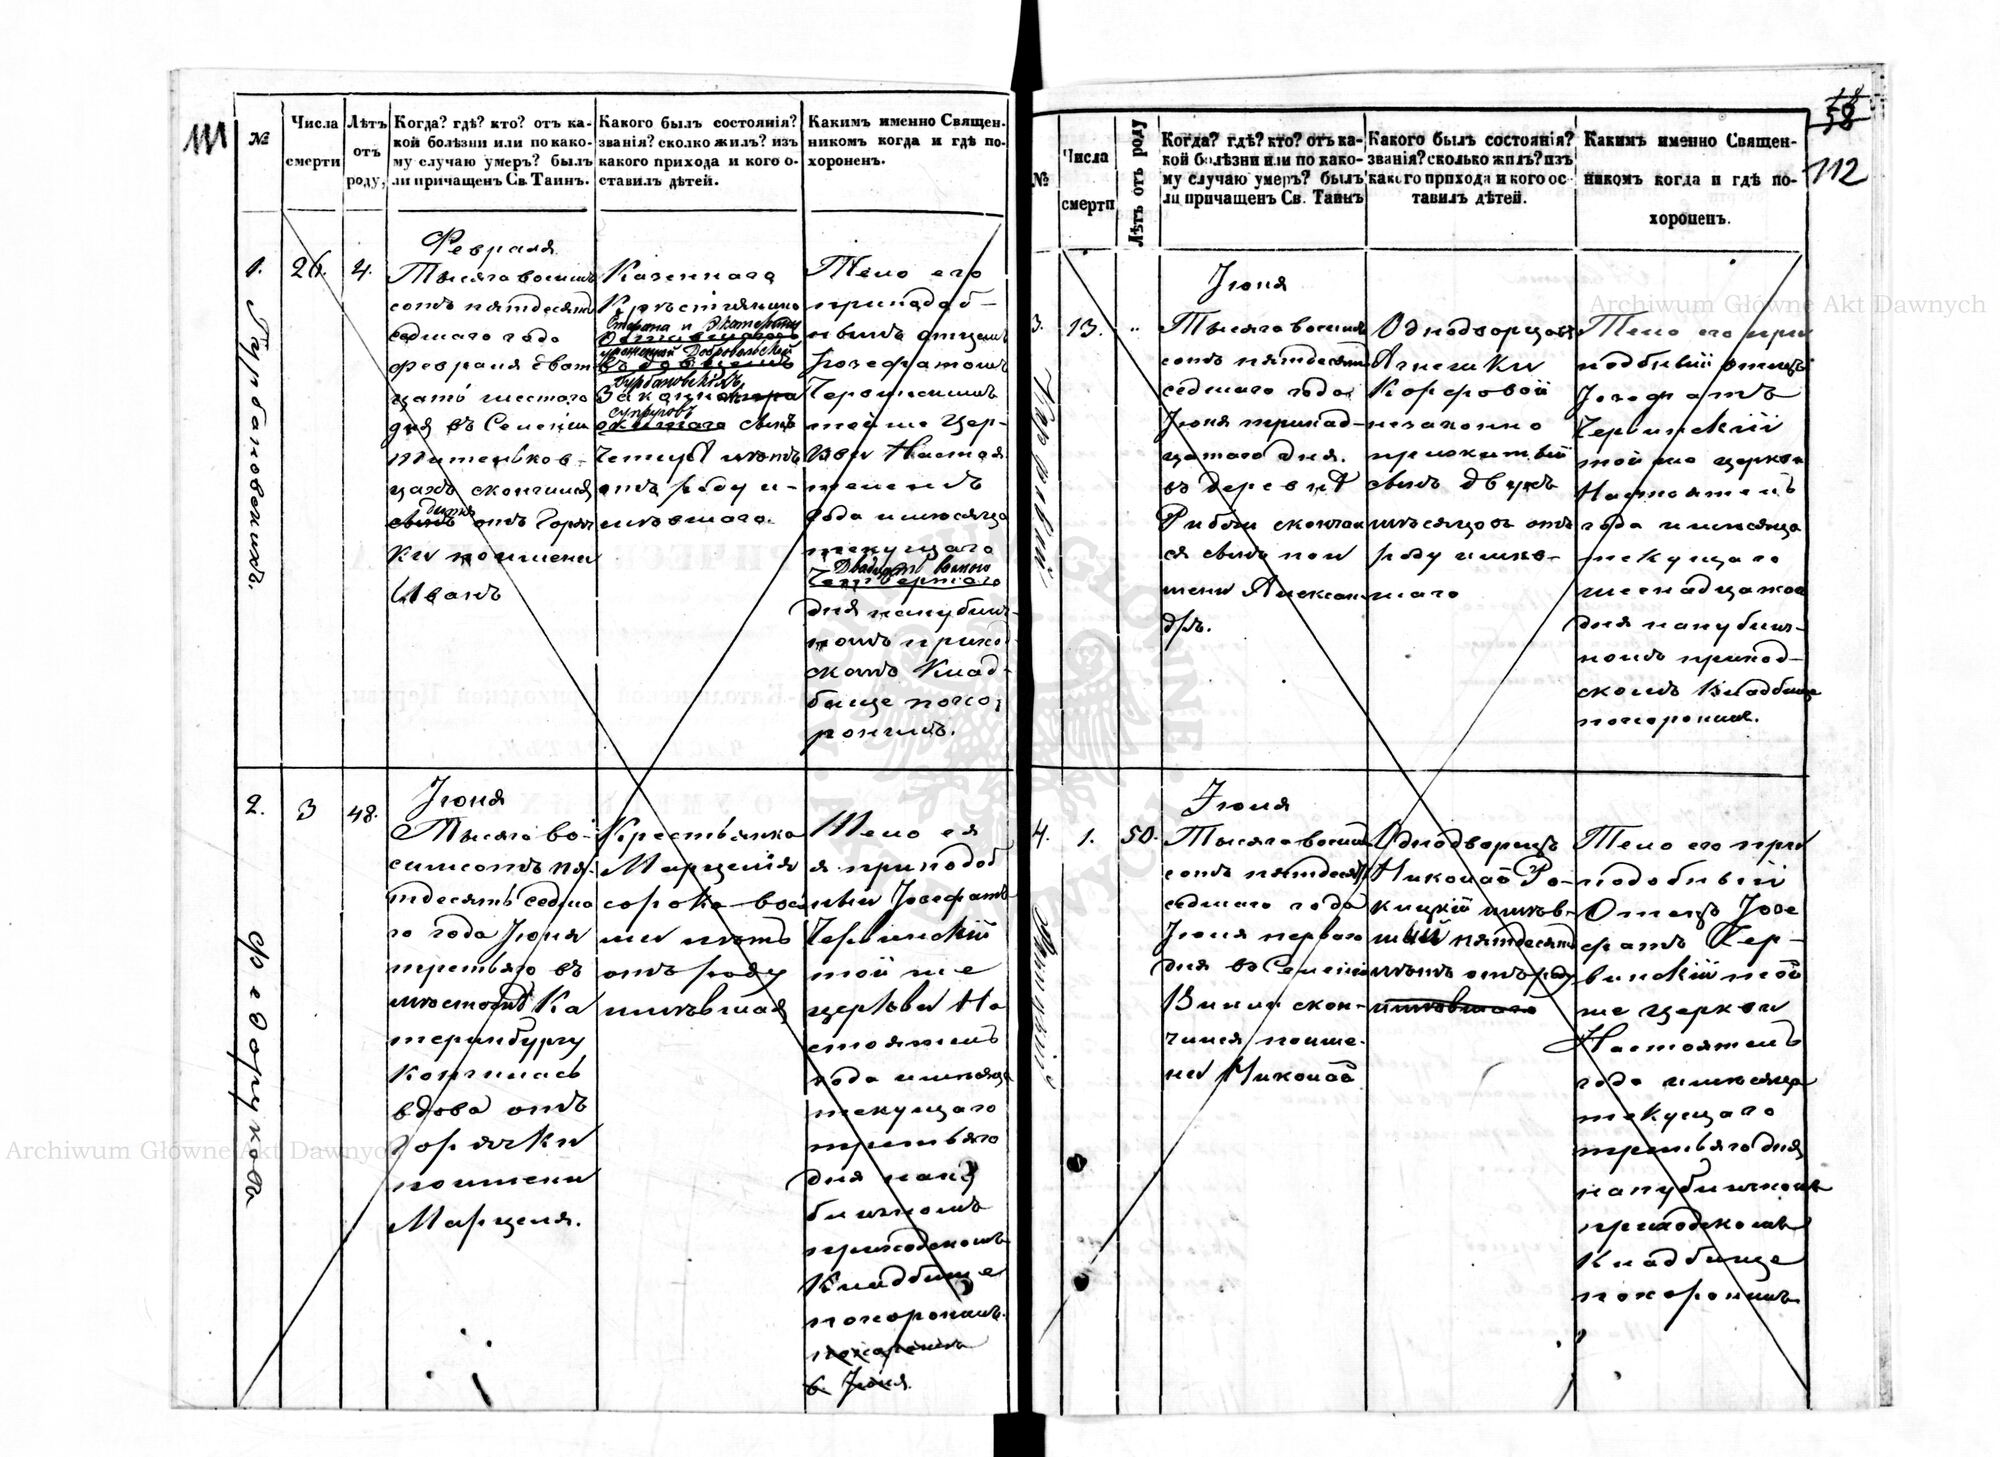 111
№
Числа
смерти
Лѣтъ
отъ
роду,
Когда? гдѣ? кто? отъ ка-
кой болѣзни или по како-
му случаю умеръ? былъ
ли причащенъ Св. Таинъ.
Какого былъ состоянія?
званія? сколко жилъ? изъ
какого прихода и кого о-
ставилъ дѣтей.
Каким именно Священ-
никомъ когда и гдѣ по-
хороненъ.
1.
Гурбановскихъ.
26.
4.
Февраля
Тысяча восемь
сотъ пятдесятъ
седмаго года
февраля двад
цать шестого
дня въ Семенiи
цахъ скончился
дитя
отъ Горяч
ки по имени
Иванъ
Казеннаго
Крѣстьянина
Стефана и Екатерины
урожденной Добровольской
Гурбановскихъ
Законнаго
супруговъ
сынъ
Четыре лѣтъ
отъ роду и-
мѣвшаго.
Тело его
приподоб-
нымъ отцемъ
Іозефатомъ
Червинскимъ
той же Цер-
кви Настоя
телемъ
года и мѣсяца
текущаго
Двадцать восмого
Четвертаго
дня на публич-
номъ приход
скомъ Клад-
бище похо,
ронилъ.
2.
Федорукова
3
48.
Іюня
Тысяча во-
семисотъ пя-
тдесятъ седма
го года Іюня
третьяго въ
мѣстѣчкѣ Ка
теринбургу
кончилась
вдова отъ
горячки
по имени
Марцеля.
Крестьянка
Марцелія
сорока вос
ми лѣтъ
отъ роду
имѣвшая
Тело ея
я приподоб
ный Іозефатъ
Червинскій
той же
церкви На
стоятель
года и мѣсяца
текущаго
третьяго
дня на пу
бличномъ
приходскомъ
Кладбище
похоронилъ.
6. Іюня.
58
112
№
Числа
смерти
Лѣтъ отъ роду
Когда? гдѣ? кто? отъ ка-
кой болѣзни или по како-
му случаю умеръ? былъ
ли причащенъ Св. Таинъ
Какого былъ состоянія?
званія? сколько жилъ? изъ
какого прихода и кого ос-
тавилъ дѣтей.
Какимъ именно Священ-
никомъ когда и гдѣ по-
хороненъ.
3.
13.
"
Іюня
Тысяча восемь
сотъ пятдесятъ
седмаго года
Іюня тринад-
цатаго дня.
въ деревнѣ
Рибчи скончал
ся сынъ по и
мени Алексан
дръ.
Однодворцовъ
Агнешки
Корфовой
незаконно
прижитый
сынъ двухъ
мѣсяцовъ отъ
роду имѣв-
шаго
Тело его при
подобный отецъ
Іозефатъ
Червинскій
той же церкви
Настоятель
года и мѣсяца
текущаго
шеснадцатаго
дня на публич-
номъ приход-
скомъ Кладбище
похоронилъ.
4.
1.
50.
Іюня
Тысяча восемь
сотъ пятдесятъ
седмаго года
Іюня перваго
дня въ Семеніи
скон-
чился по име-
ни Николай
Однодворецъ
Николай Ро-
кицкій имѣв-
шій пятдесятъ
лѣтъ отъ роду
имѣвшаго
Тело его при
подобный
Отецъ Іозе
фатъ Чер-
винскій той
же церкви
Настоятель
года и мѣсяца
текущаго
третьяго дня
на публичномъ
приходскомъ
Кладбище
похоронилъ
Archiwum Główne Akt Dawnych
Archiwum Główne Akt Dawnych